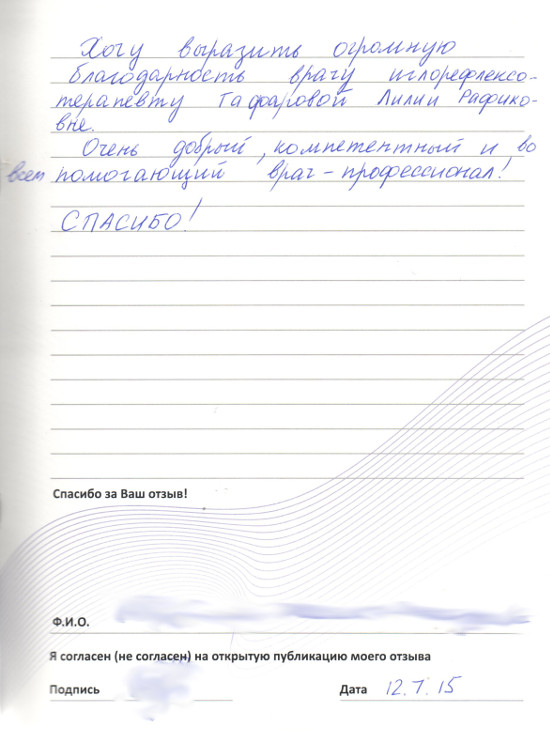 Хочу выразить огромную
благодарность врагу иглорефлексо-
терапевту Гафаровой Лилии Рафико-
вне.
Очень добрый, компетентный и во
всем помогающий враг - профессионал!
СПАСИБО!
Спасибо за Ваш отзыв!
Ф.И.О.
Я согласен (не согласен) на открытую публикацию моего отзыва
Подпись Дата 12.7.15